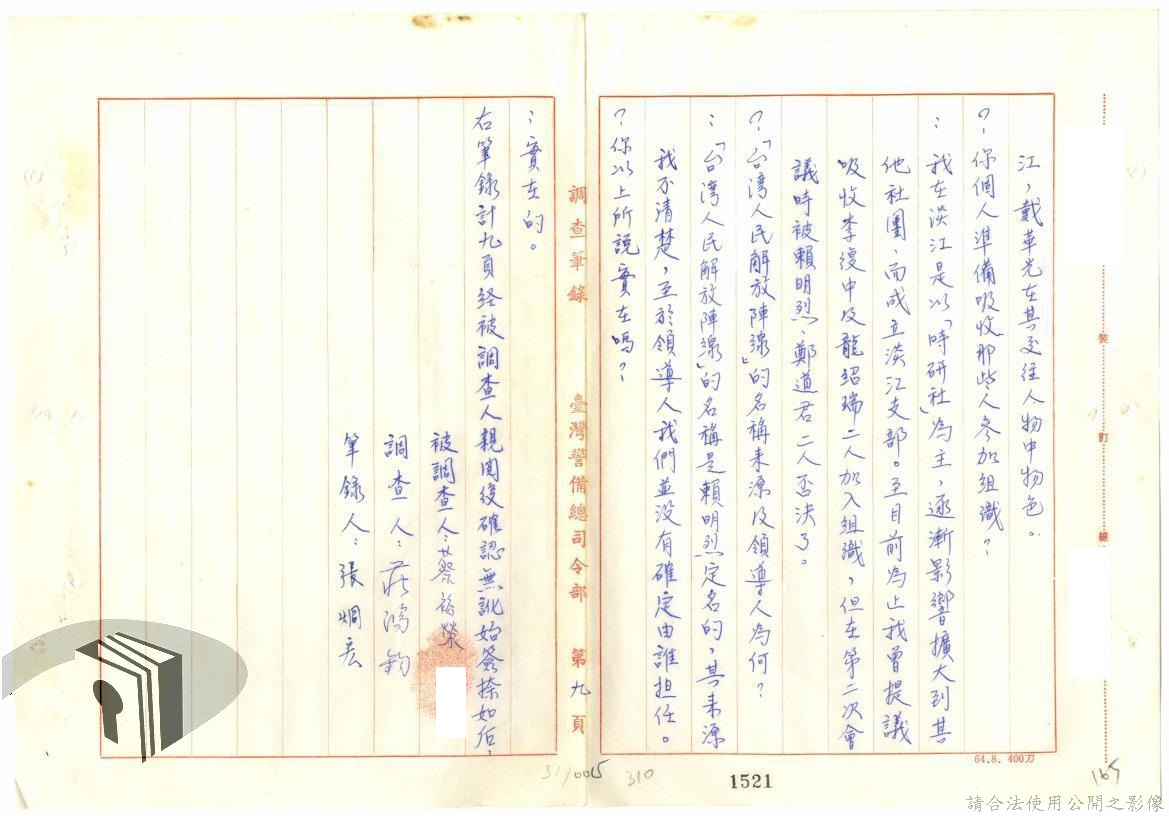 江，戴華光在其交往人物中物色。
？：你個人準備吸收那些人參加組織？
：我在淡江是以「時研社」為主，逐漸影響擴大到其
他社團，而成立淡江支部。至目前為止我曾提議
吸收李復中及龍紹瑞二人加入組織，但在第二次會
議時被賴明烈、鄭道君二人否決了。
？：「台湾人民解放陣線」的名稱來源及領導人為何？
：「台湾人民解放陣線」的名稱是賴明烈定名的，其來源
我不清楚，至於領導人我們並没有確定由誰担任。
？：你以上所說實在嗎？
調查筆錄　臺灣警備總司令部　第九頁
：實在的。
右筆錄計九頁経被調查人親閱後確認無訛始簽捺如后：
被調查人：蔡裕榮
調查人：莊鴻鈞
筆錄人：張炯宏
裝
訂
線
64.8. 400刀
31/0015
310
1521
165
請合法使用公開之影像